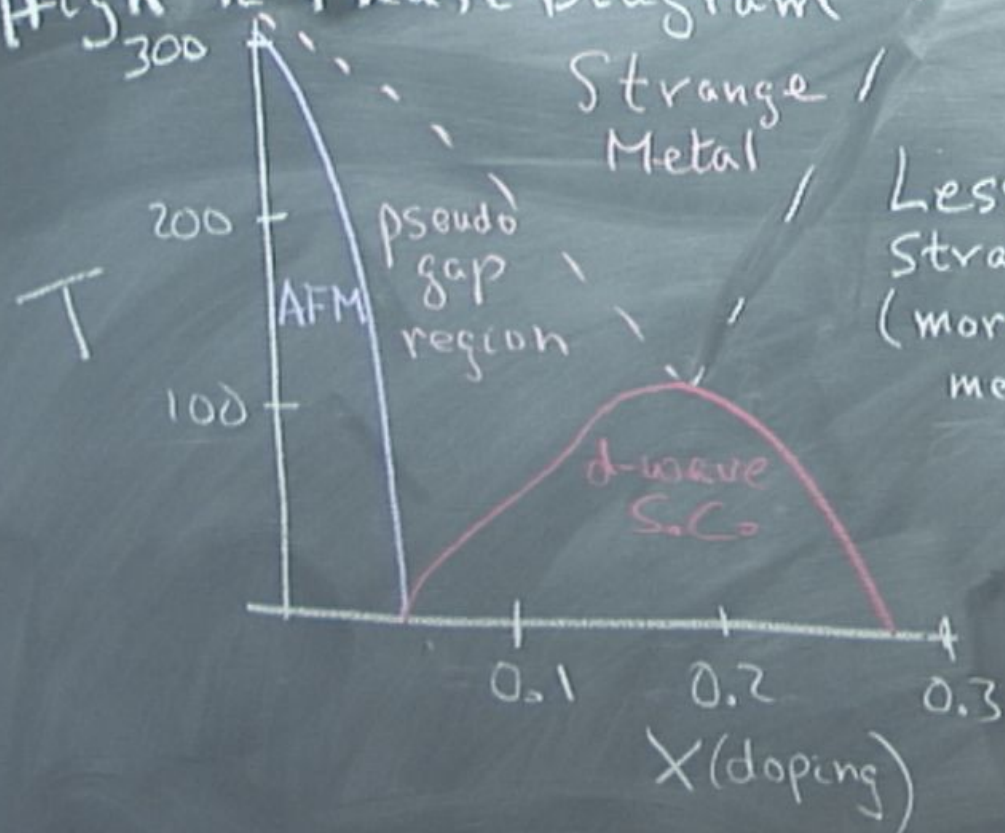 High Tc Phase Diagram
300
Strange
Metal
Les
Stra
(mor
me
200
pseudo
gap
region
T
AFM
100
d-wave
S.C.
0.1
0.2
0.3
X (doping)